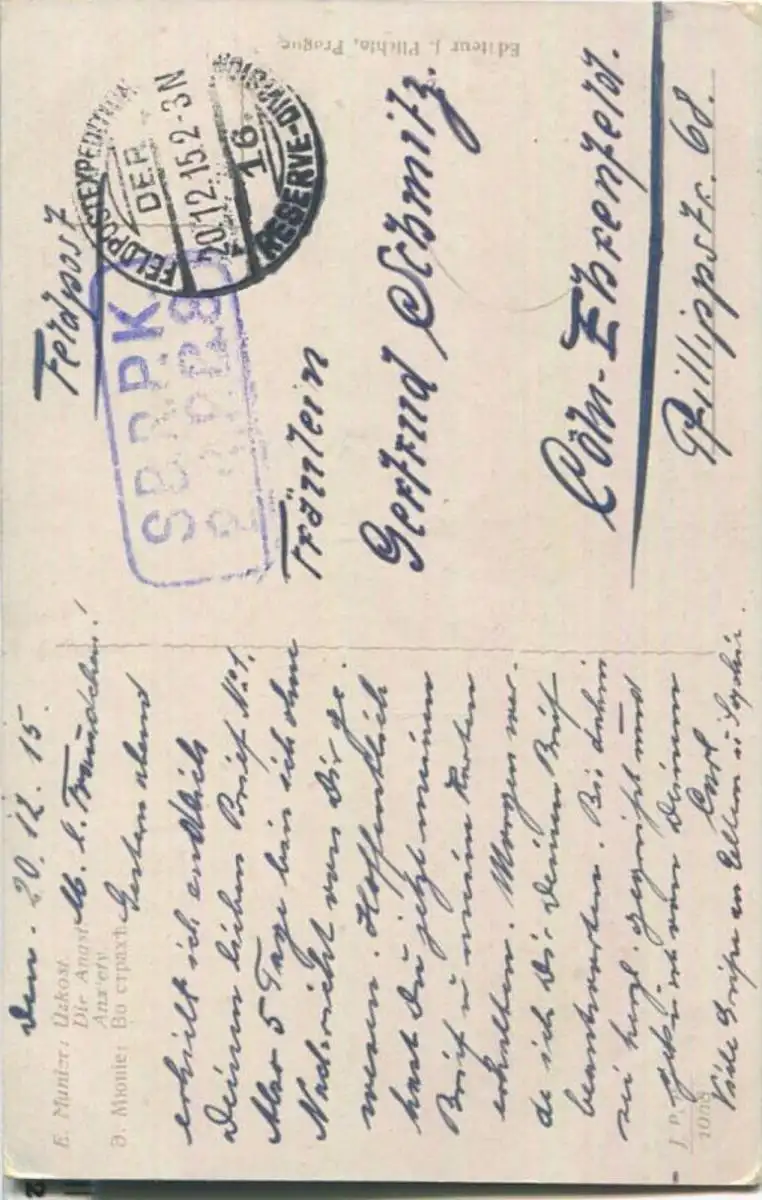 den. 20.12.15.
M. l. Traudchen!
Gestern abend
erhielt ich endlich
Deinen lieben Brief No 1.
Also 5 Tage bin ich ohne
Nachricht von Dir ge-
wesen. Hoffentlich
hast Du jetzt meinen
Brief u meine Karten
erhalten. Morgen wer-
de ich Dir Deinen Brief
beantworten. Bis dahin
sei herzl. gegrüßt und
geküsst von Deinem
Carl
Viele Grüße an Eltern u
E. Munier: Úzkost.
Die Angst.
Anxiety.
Э. Мюнье: Во страхѣ
J. P. P.
1088
Feldpost
FELDPOSTEXPEDITION
DER
20.12.15.2-3N
16
RESERVE-DIVISION
S.B. R.P.K.
Fräulein
Gertrud Schmitz.
Cöln-Ehrenfeld.
Phillippstr. 68.
Editeur J. Plichta, Prague.